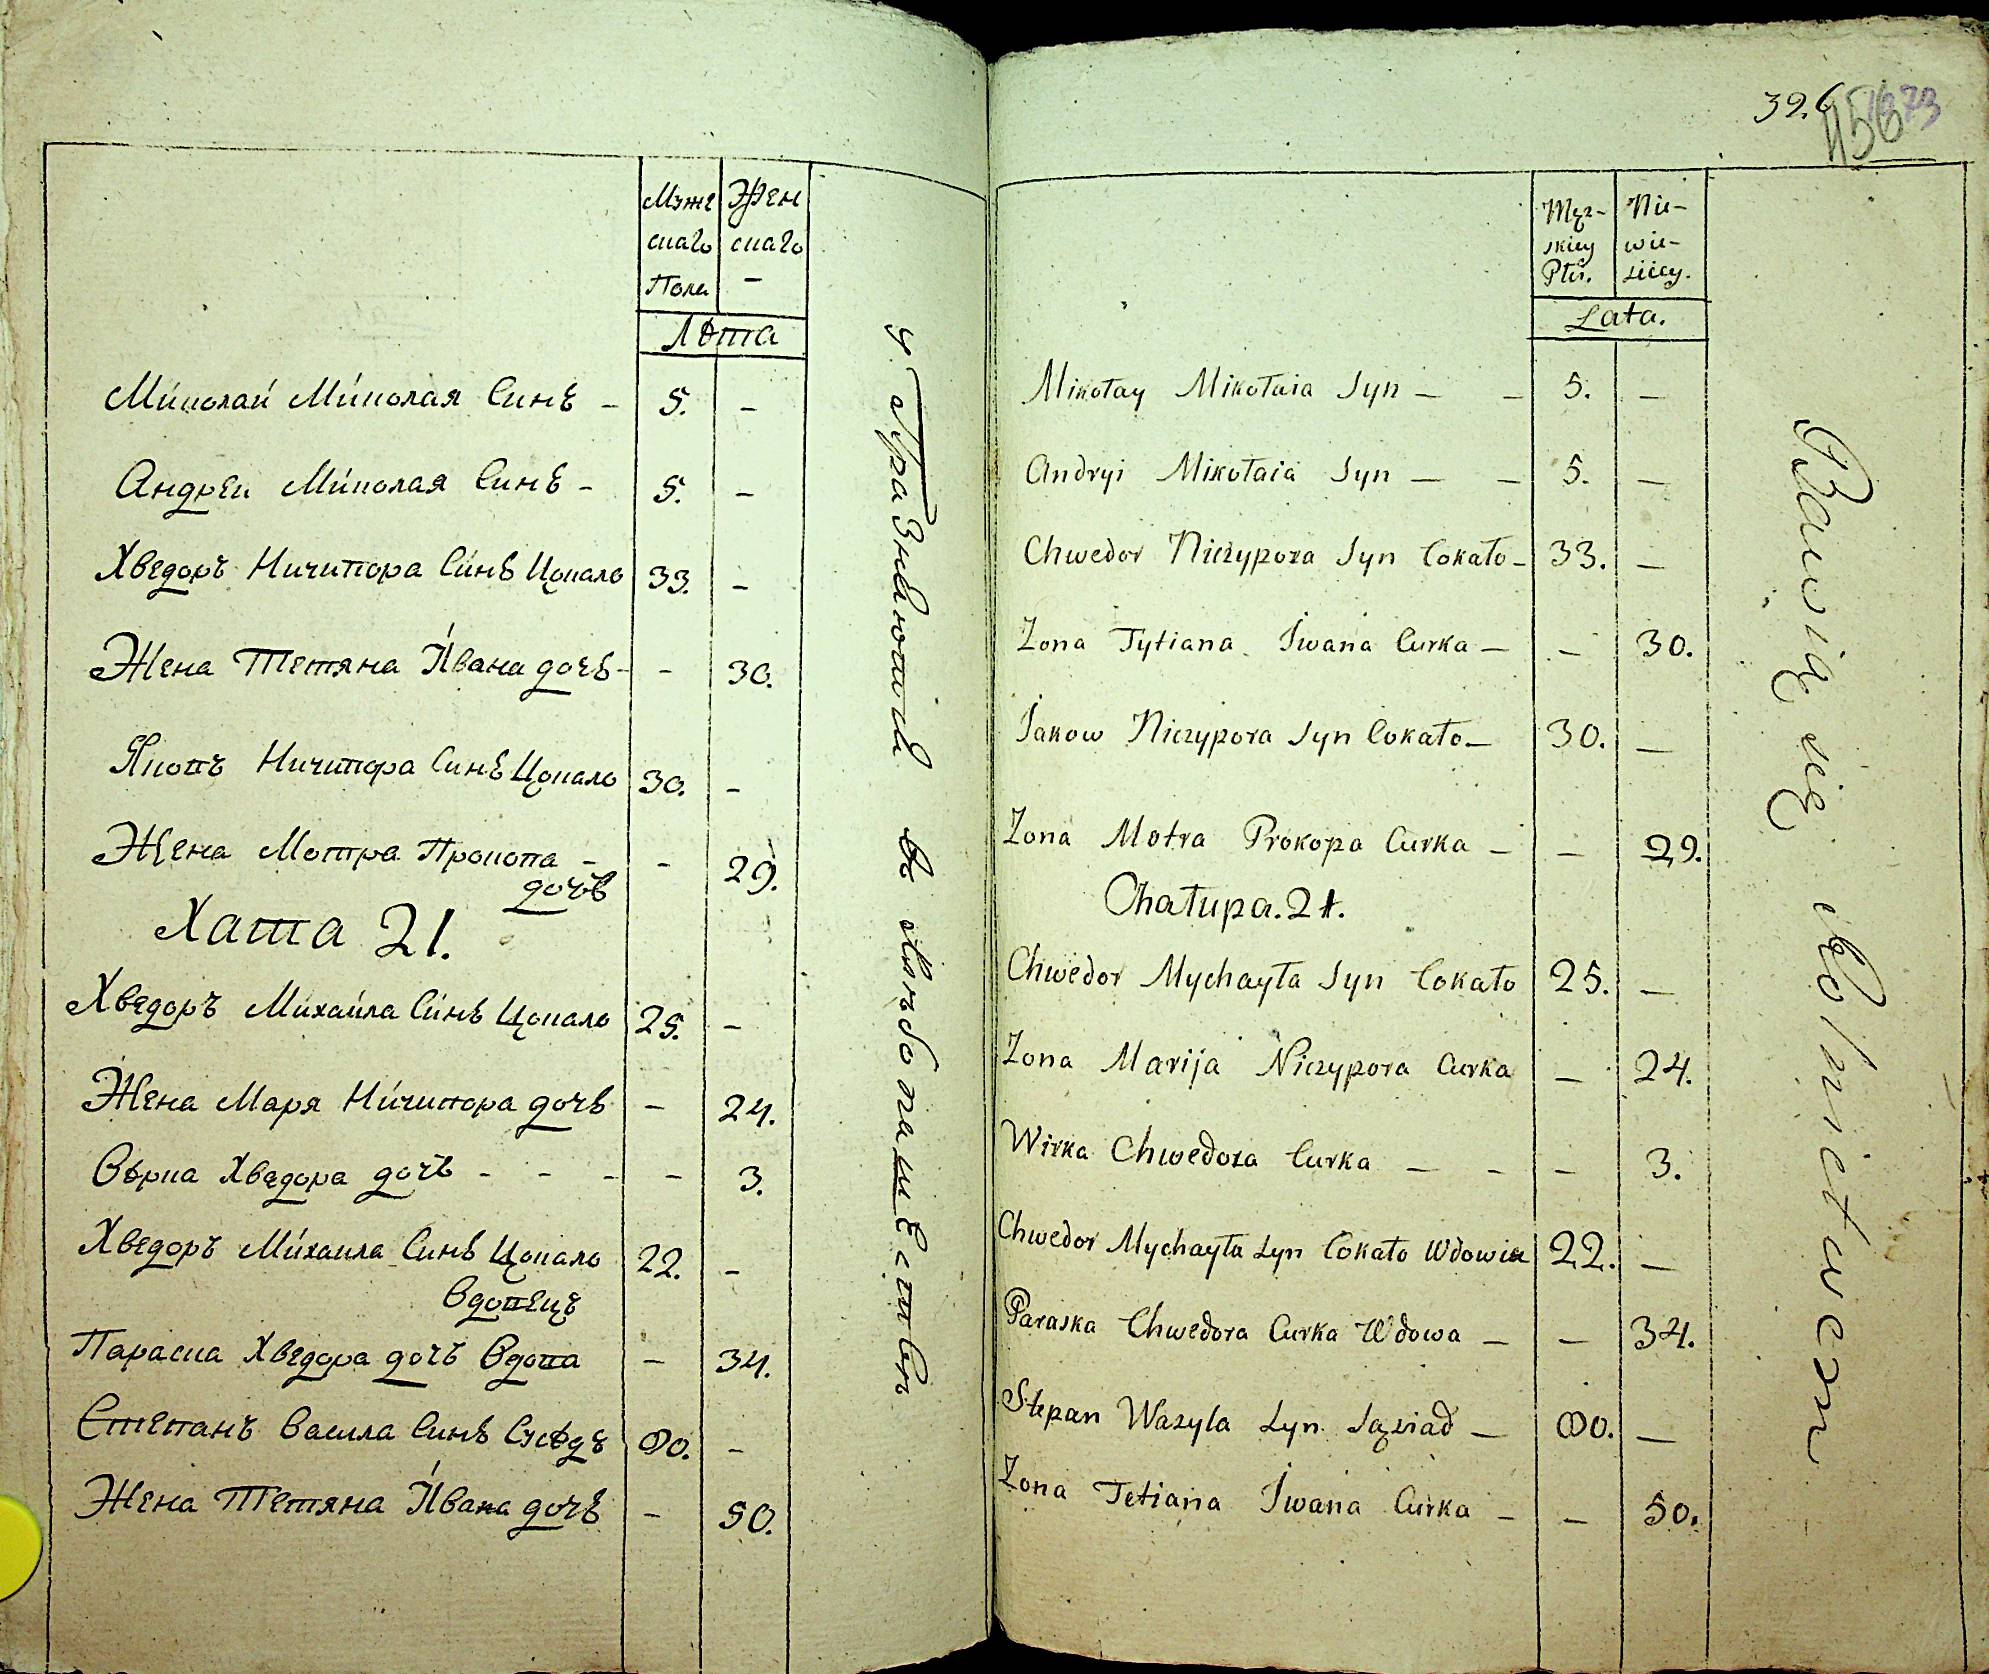 Мꙋже
скаго
Пола
Жен
скаго
—
Лѣта
Миколай Миколая Синъ – 5. –
Андрей Миколая Синъ – 5. –
Хведоръ Ничипора Синъ Цокало 33. –
Жена Тетяна Ивана дочь – – 30.
Якопъ Ничипора Синъ Цокало 30. –
Жена Мотра Прокопа – – 29.
дочъ
Хата 21.
Хведоръ Михайла Синъ Цокало 25. –
Жена Маря Ничипора дочь – 24.
Вѣрка Хведора дочъ - - - – 3.
Хведоръ Михаила Синъ Цокало 22. –
Вдовецъ
Параска Хведора дочъ Вдова – 34.
Степанъ Васила Синъ Сусѣдъ –
Жена Тетяна Ивана дочъ – 50.
въ
39.
Męz-
skiey
Płci.
Nie-
wie-
sciey.
Lata.
Mikołay Mikołaia Syn — – 5. —
Andryi Mikołaia Syn — – 5. —
Chwedor Niczypora Syn Cokało – 33. —
Zona Tytiana Iwana Curka — – 30.
Iakow Niczypora Syn Cokało — 30. —
Zona Motra Prokopa Curka – — 29.
Chałupa. 21.
Chwedor Mychayła Syn Cokało 25. —
Zona Marija Niczypora Curka — 24.
Wirka Chwedora Curka — – – 3.
Chwedor Mychayła Syn Cokało 22. —
Paraska Chwedora Curka Wdowa – — 34.
Stepan Wasyla Syn Sąsiad — —
Zona Tetiana Iwana Curka – — 50.
Bawią się Rolnictwem